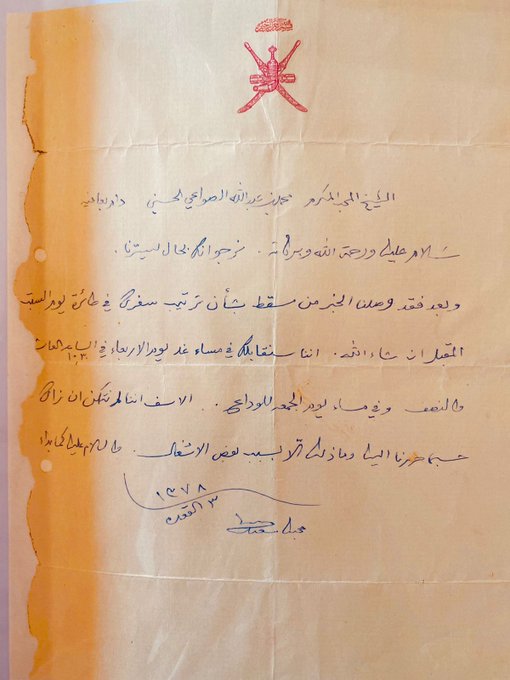 الشيخ المحب المكرم محمد بن عبدالله الصواعي الحسني دام بعافيه
سلام عليك ورحمة الله وبركاته. نرجو انكم بحال يسرنا.
وبعد فقد وصلنا الخبر من مسقط بشأن ترتيب سفركم في طائرة يوم السبت
المقبل ان شاء الله. اننا سنقابلكم في مساء غد يوم الاربعاء في الساعة العاشرة
١٠،٣٠
والنصف وفي مساء يوم الجمعه للوداع. الاسف اننا لم نتمكن ان نراكم
حسبما حررنا اليك وما ذلك الا بسبب بعض الاشغال. والسلام عليك كما بدأ
١٣٧٨
٣ القعدة
محبك سعيد